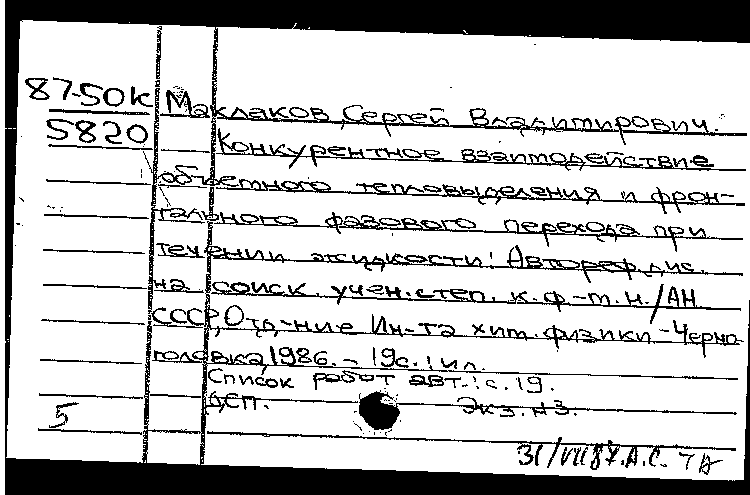 87-50К Маклаков, Сергей Владимирович.
5820 Конкурентное взаимодействие
объемного тепловыделения и фрон-
тального фазового перехода при
течении жидкости: Автореф. дис.
на соиск. учен. степ. к.ф.-м.н./АН
СССР, Отд-ние Ин-та хим. физики.-Черно-
головка, 1986. - 19с.: ил.
Список работ авт.: с. 19.
ДСП. Экз. N3.
5
31/VII87. А.С.